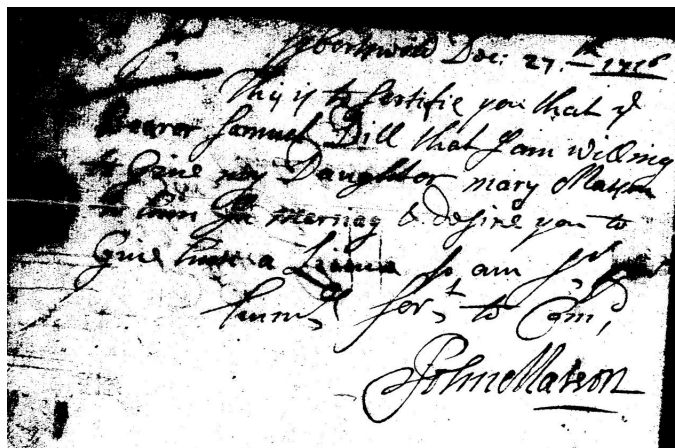 Sr
Dec: 27.th 1716
This is to sertifie you that ye
Bearer Samuel Dill that I am willing
to Give my Daughter mary Matson
to him In & desire you to
Give him a Licence so am Sr yor
humle Sert to Com,
John Matson